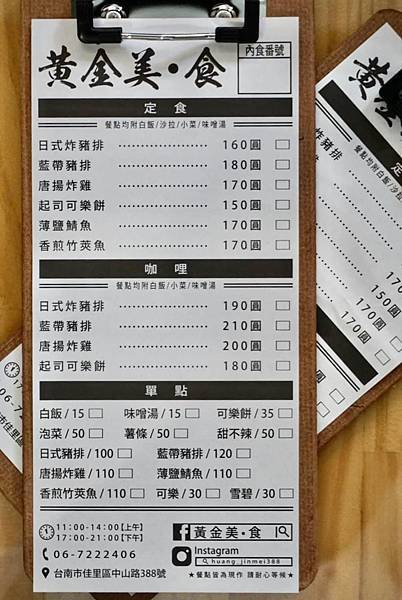 黃金美·食
內食番號
定食
餐點均附白飯/沙拉/小菜/味噌湯
日式炸豬排 160圓
藍帶豬排 180圓
唐揚炸雞 170圓
起司可樂餅 150圓
薄鹽鯖魚 170圓
香煎竹莢魚 170圓
咖哩
餐點均附白飯/小菜/味噌湯
日式炸豬排 190圓
藍帶豬排 210圓
唐揚炸雞 200圓
起司可樂餅 180圓
單點
白飯/15 味噌湯/15 可樂餅/35
泡菜/50 薯條/50 甜不辣/50
日式豬排/100 藍帶豬排/120
唐揚炸雞/110 薄鹽鯖魚/110
香煎竹莢魚/110 可樂/30 雪碧/30
11:00-14:00【上午】
17:00-21:00【下午】
06-7222406
台南市佳里區中山路388號
黃金美·食
Instagram
huang_jinmei388
★餐點皆為現作 請耐心等候★
黃金
定
餐點均附白飯/沙拉
炸豬排
豬排
170
150圓
170圓
170圓
17:0
06-722
市佳里區